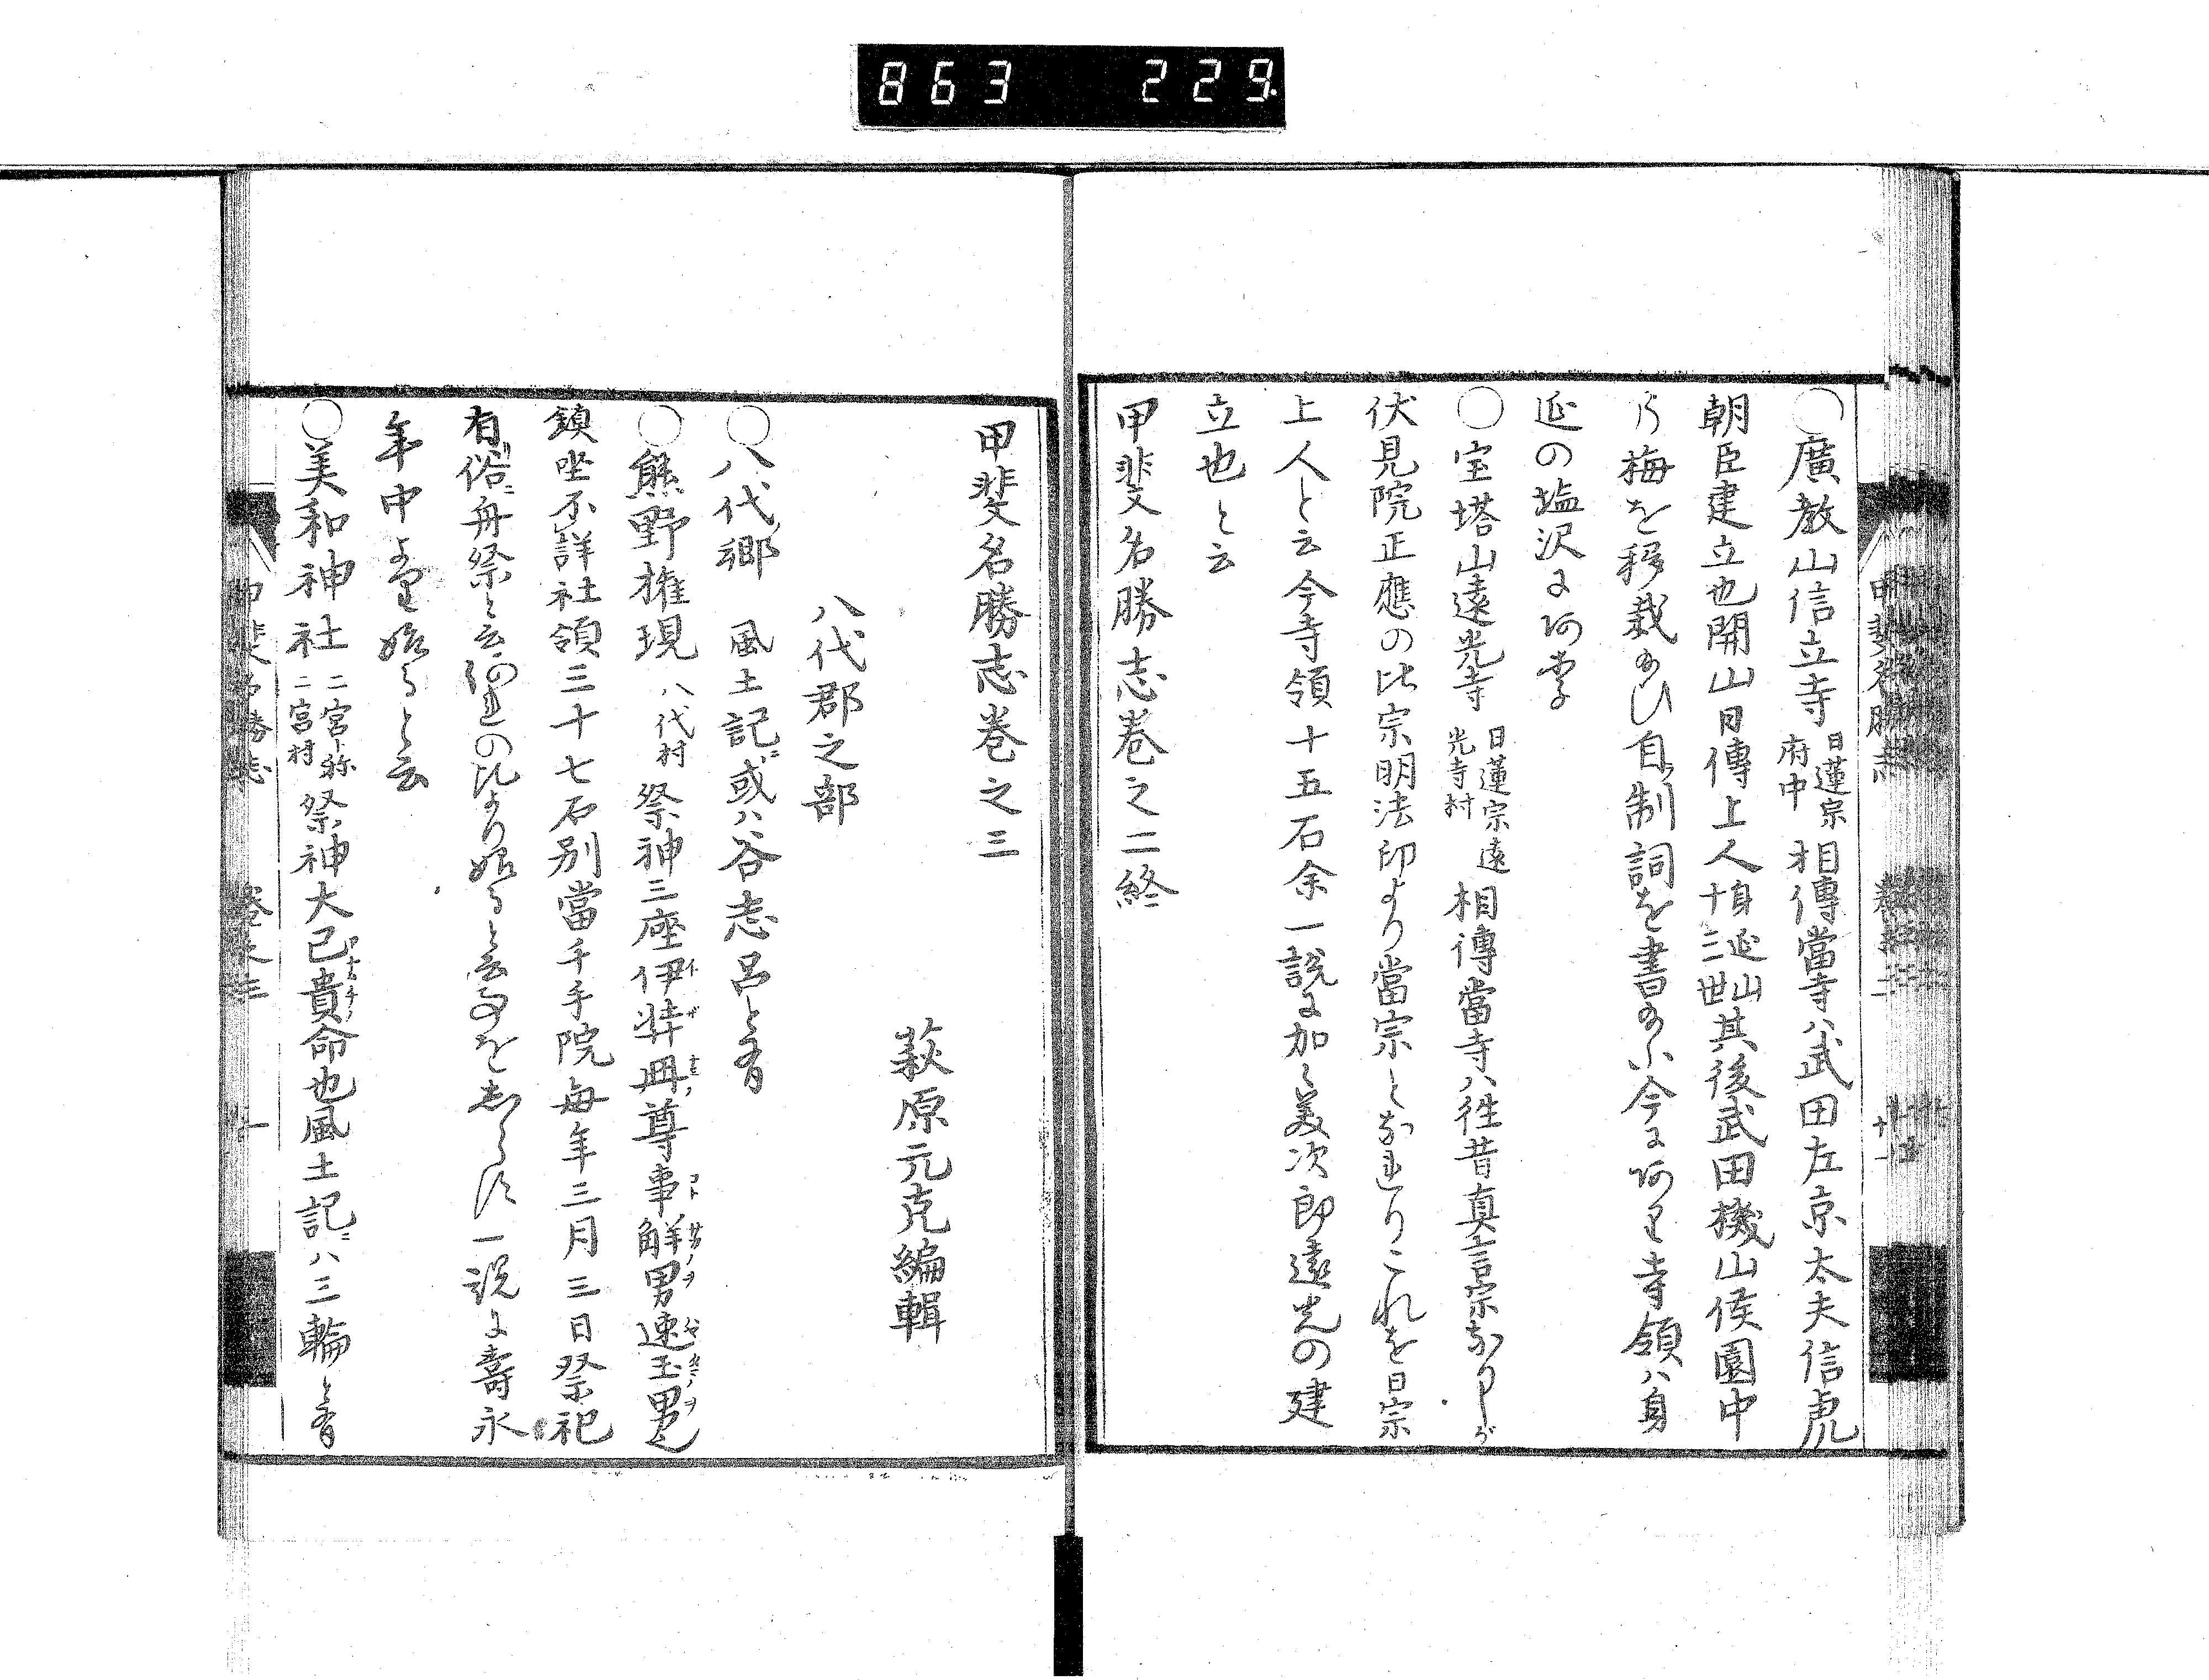 863 229
○廣教山信立寺 日蓮宗府中 相傳當寺ハ武田左京太夫信虎
朝臣建立也開山日傳上人身延山十三世其後武田機山侯園中
乃梅を移栽あひ自制詞を書あふ今に阿り寺領ハ身
延の塩沢に阿李
○宝塔山遠光寺 日蓮宗遠光寺村 相傳當寺ハ徃昔真言宗なりしが
伏見院正應の比宗明法印より當宗となれりこれを日宗
上人と云今寺領十五石余一説に加〻美次郎遠光の建
立也と云
甲斐名勝志巻之二終
甲斐名勝志巻之三
萩原元克編輯
八代郡之部
○八代郷 風土記ニ或ハ谷志呂と有
○熊野権現 八代村 祭神三座伊弉冊尊事解男速玉男也
鎮坐不詳社領三十七石別當千手院毎年三月三日祭祀
有俗ニ舟祭と云何れの比より始ると云事をしらす一説に壽永
年中より始ると云
○美和神社 二宮ト称二宮村 祭神大己貴命也風土記ニハ三輪と有
甲斐名勝志 巻之三 一